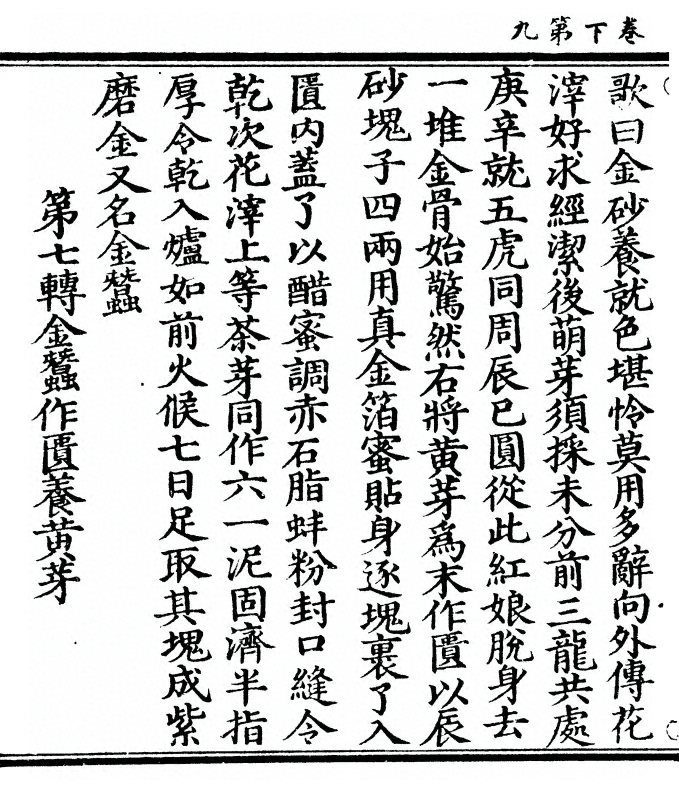 卷下第九
歌曰金砂養就色堪怜莫用多辭向外傳花
滓好求經潔後萌芽須採未分前三龍共處
庚辛就五虎同周辰巳圓從此紅娘脫身去
一堆金骨始驚然右將黄芽爲末作匱以辰
砂塊子四兩用真金箔蜜貼身逐塊裏了入
匱内蓋了以醋蜜調赤石脂蚌粉封口縫令
乾次花滓上等茶芽同作六一泥固濟半指
厚令乾入爐如前火候七日足取其塊成紫
磨金又名金蠶
第七轉金蠶作匱養黄芽